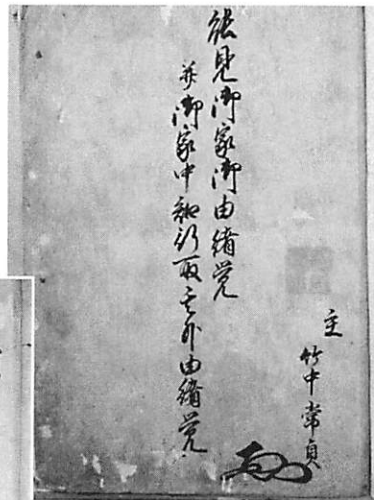 能見御家御由緒覚
并御家中知行取其外由緒覚
主
竹中常貞